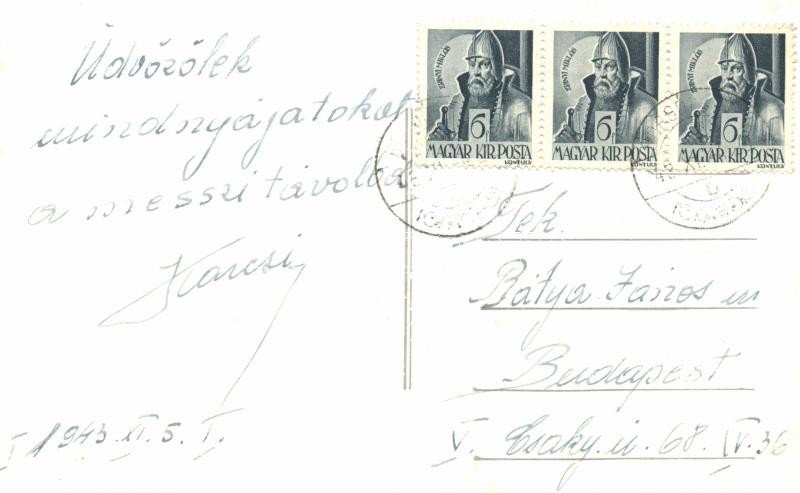 Üdvözölek
mindnyájatokat
a messzi távolból
Karcsi
1943. XI. 5.
ZRINYI MIKLÓS
6
MAGYAR KIR. POSTA
KONTULY
ZRINYI MIKLÓS
6
MAGYAR KIR. POSTA
KONTULY
ZRINYI MIKLÓS
6
MAGYAR KIR. POSTA
KONTULY
Tek.
Bátya János úr
Budapest
V. Csaky. u. 68. IV. 36